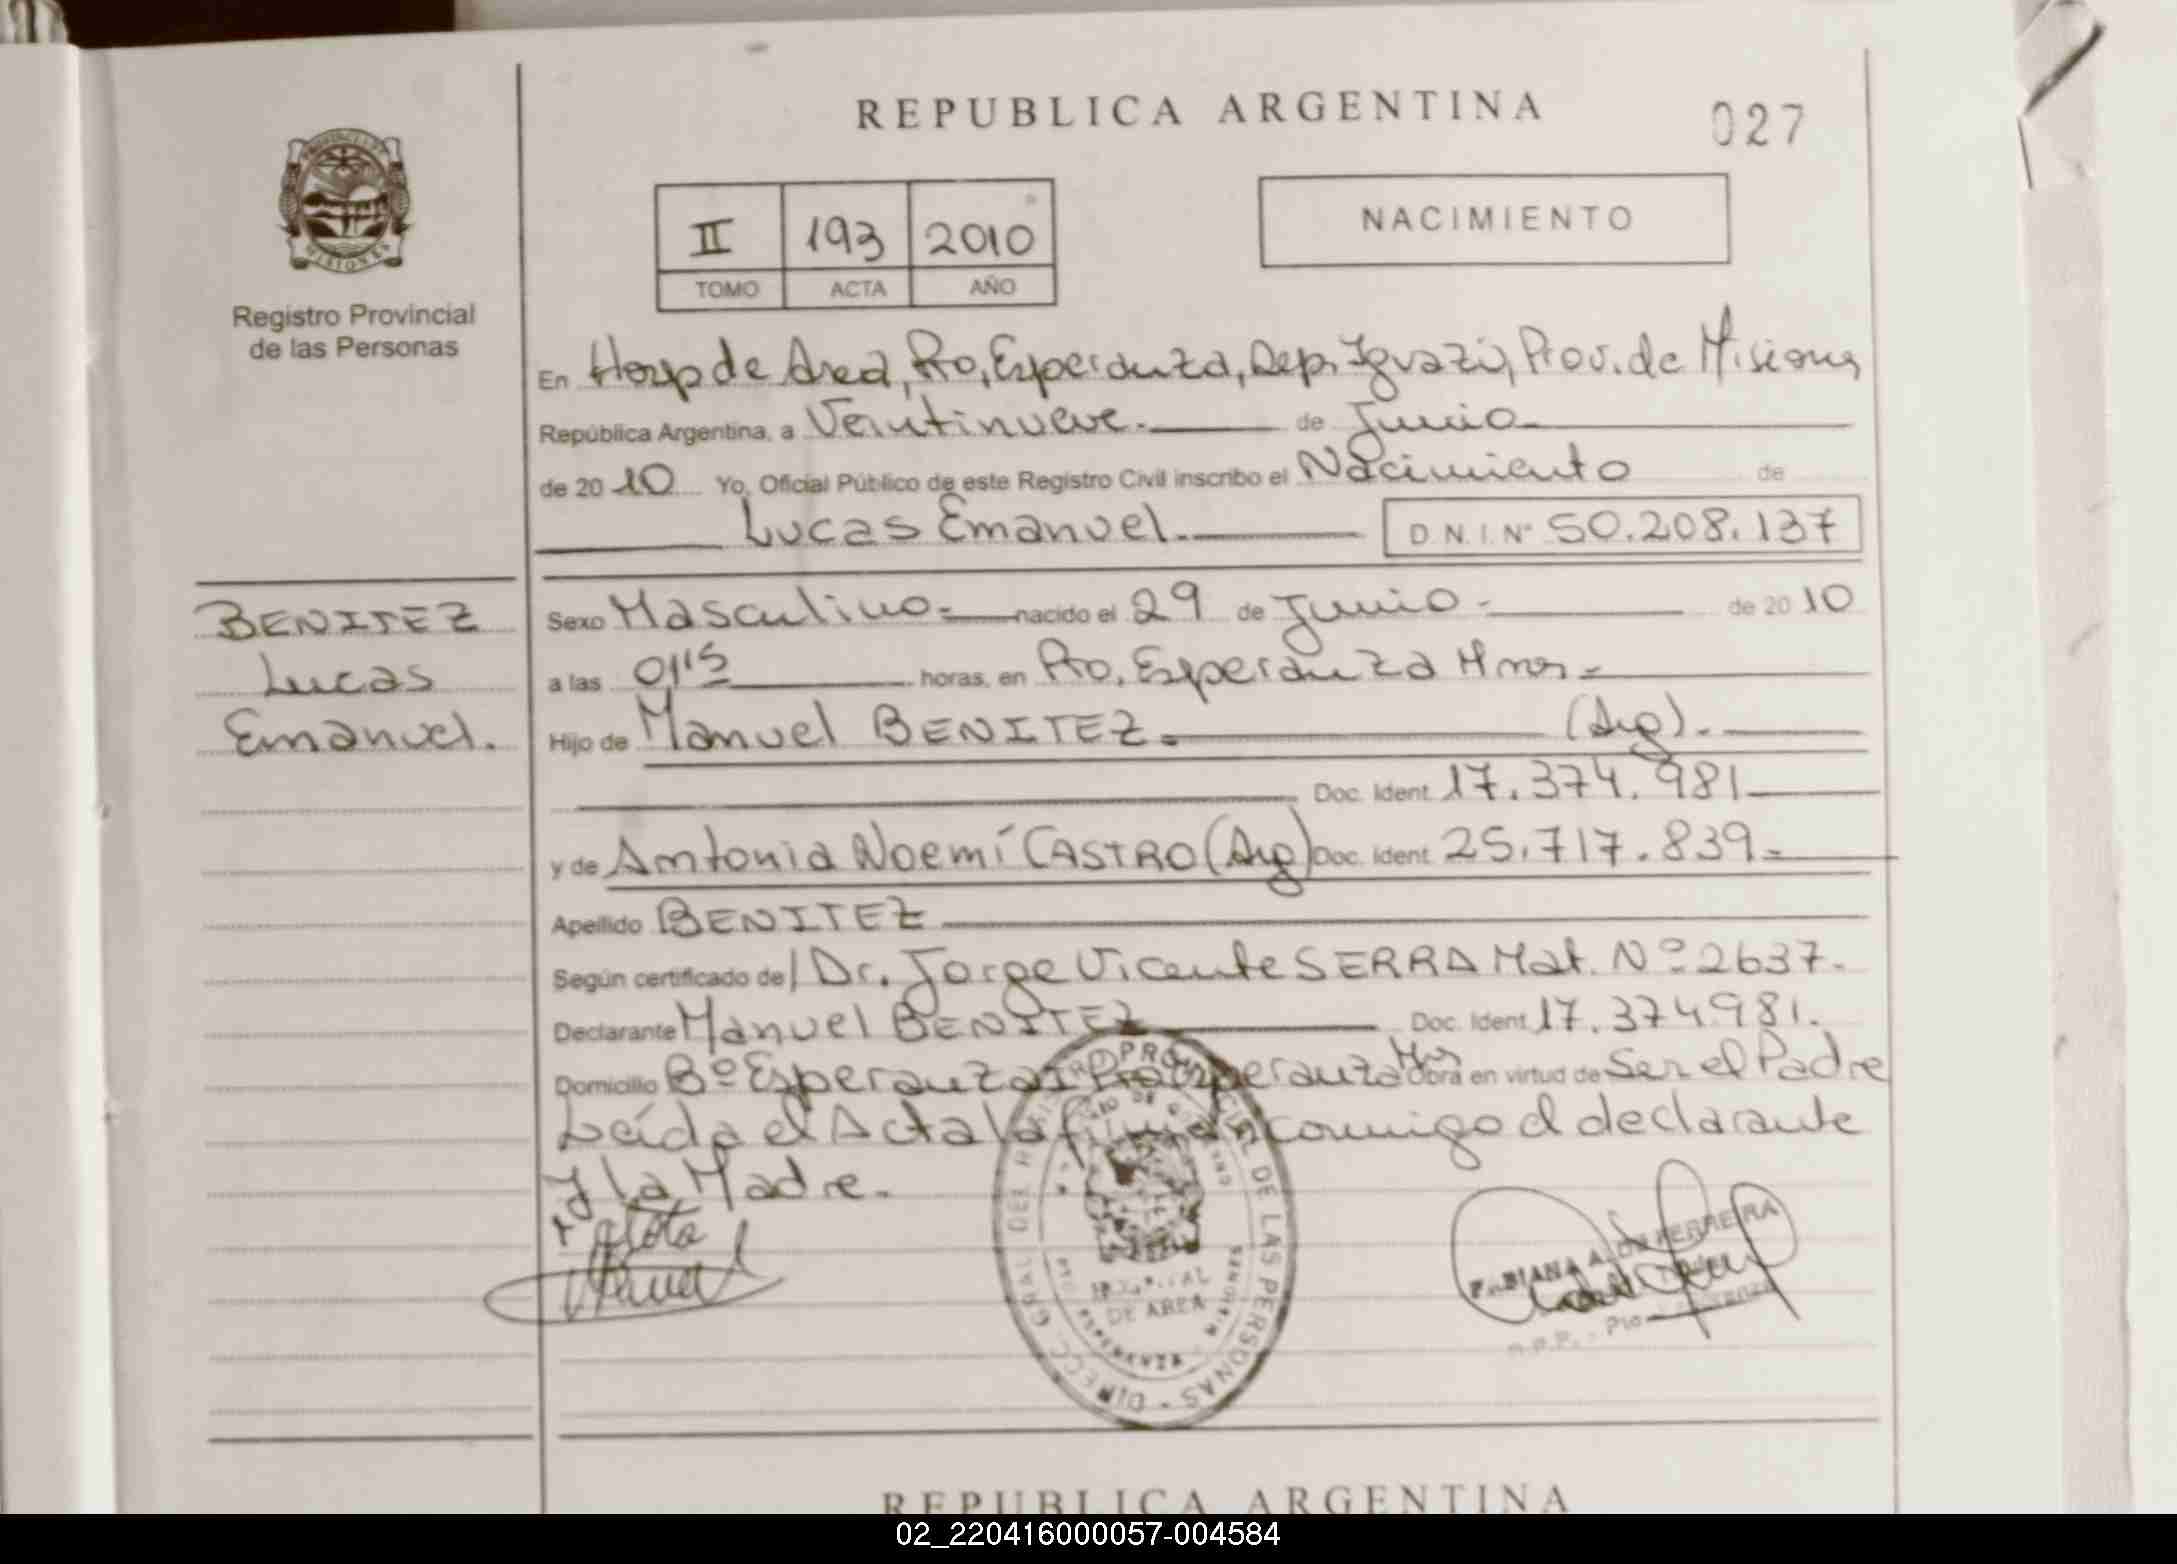 REPUBLICA ARGENTINA
027
PROVINCIA DE MISIONES
Registro Provincial
de las Personas
II 193 2010
TOMO ACTA AÑO
NACIMIENTO
En Hosp de Area, Pto, Esperanza, Dep. Iguazú, Prov. de Misiones
República Argentina, a Veintinueve. de Junio
de 2010 Yo, Oficial Público de este Registro Civil inscribo el Nacimiento de
Lucas Emanuel. D.N.I. Nº 50.208.137
BENITEZ
Lucas
Emanuel.
Sexo Masculino.- nacido el 29 de Junio - de 2010
a las 01:15 horas, en Pto. Esperanza Mnes-
Hijo de Manuel BENITEZ. (Arg).
Doc. Ident. 17.374.981
y de Antonia Noemí CASTRO (Arg) Doc. Ident. 25.717.839-
Apellido BENITEZ
Según certificado de/ Dr. Jorge Vicente SERRA Mat. Nº 2637.
Declarante Manuel BENITEZ Doc. Ident. 17.374981.
Domicilio Bº Esperanza I Pto Esperanza Mnes Obra en virtud de Ser el Padre
Leída el Acta la firman conmigo el declarante
y la Madre.
DIRECC. GRAL DEL REGISTRO PROVINCIAL DE LAS PERSONAS
HOSPITAL
DE AREA
PTO. ESPERANZA MISIONES
DE FERREIRA
R.P.P. - Pto. Esperanza
REPUBLICA ARGENTINA
02_220416000057-004584